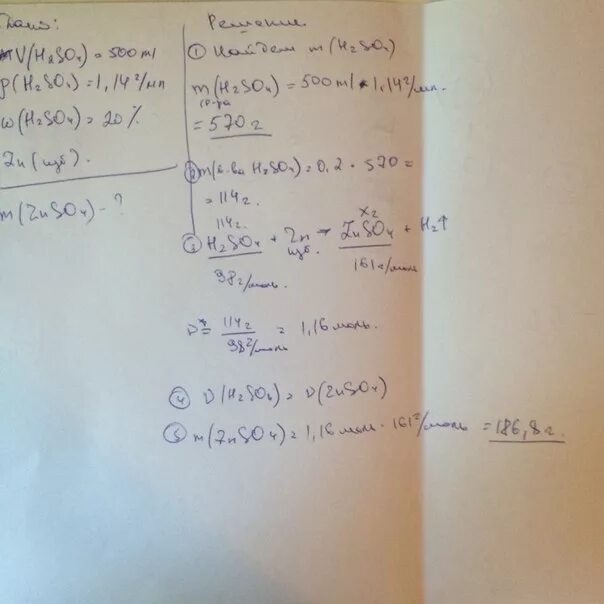 Дано:
V(H₂SO₄) = 500 ml
ρ(H₂SO₄) = 1,14 г/мл
ω(H₂SO₄) = 20 %
Zn (изб).
m(ZnSO₄) - ?
Решение
① Найдем m(H₂SO₄)
m(H₂SO₄) = 500 ml · 1,14 г/мл.
р-ра
= 570 г
② m(в-ва H₂SO₄) = 0,2 · 570 =
= 114 г.
114 г. x г
③ H₂SO₄ + Zn → ZnSO₄ + H₂↑
изб.
98 г/моль. 161 г/моль
ν = 114 г / 98 г/моль = 1,16 моль.
④ ν(H₂SO₄) = ν(ZnSO₄)
⑤ m(ZnSO₄) = 1,16 моль · 161 г/моль = 186,8 г.